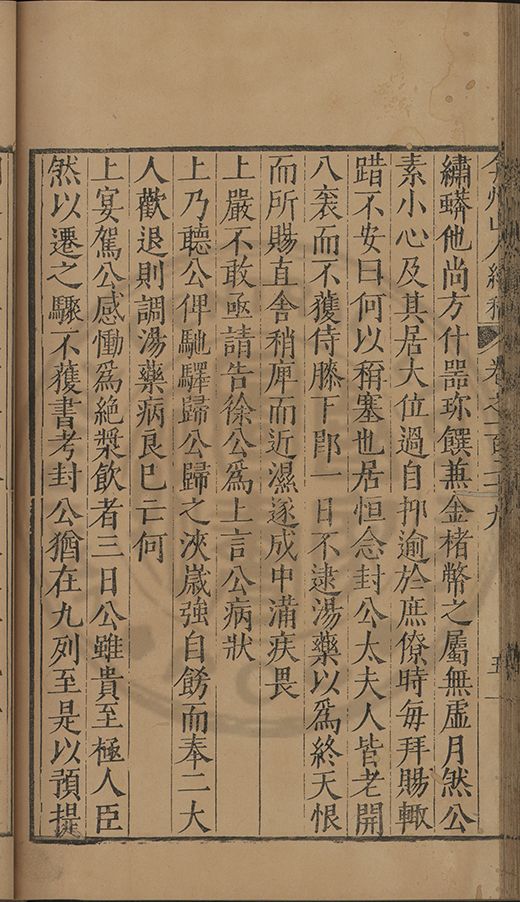 弇州山人續稿 卷之一百二十九 五
繡蟒他尚方什噐珎饌蒸金楮幣之屬無虛月然公
素小心及其居大位過自抑逾於庶僚時每拜賜輙
踖不安曰何以稱塞也居恒念封公太夫人皆老開
八袠而不獲侍膝下卽一日不逮湯藥以爲終天恨
而所賜直舎稍庳而近濕遂成中滿疾畏
上嚴不敢亟請告徐公爲上言公病狀
上乃聽公俾馳驛歸公歸之浹嵗強自餝而奉二大
人歡退則調湯藥病良巳亡何
上宴駕公感慟爲絶漿飲者三日公雖貴至極人臣
然以遷之驟不獲書考封公猶在九列至是以預提